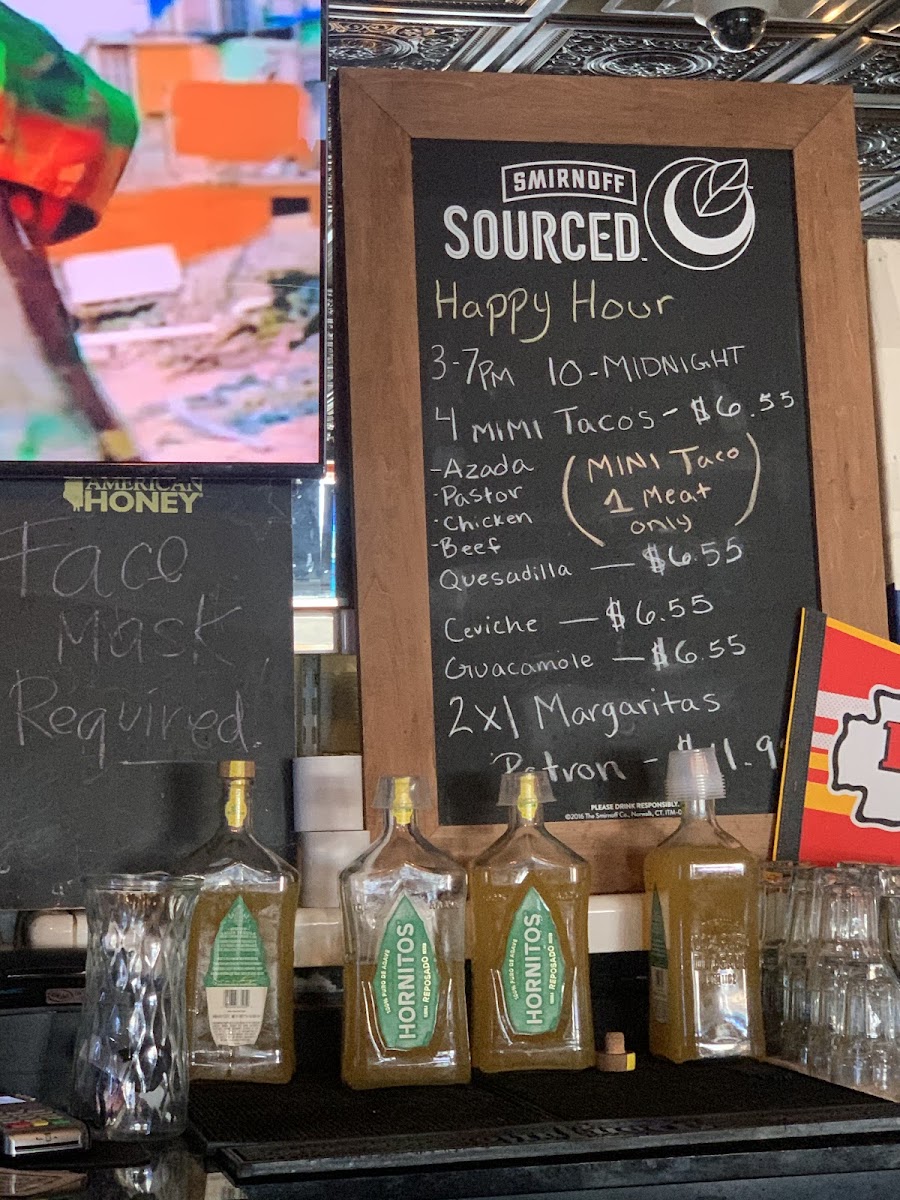 SMIRNOFF
SOURCED
Happy Hour
3-7PM 10-MIDNIGHT
4 MIMI Tacos - $6.55
-Azada
-Pastor
-Chicken
-Beef
(MINI Taco
1 Meat
only)
Quesadilla — $6.55
Ceviche — $6.55
Guacamole — $6.55
2x1 Margaritas
Patron - $11.9
PLEASE DRINK RESPONSIBLY.
©2016 The Smirnoff Co., Norwalk, CT.
AMERICAN
HONEY
Face
Mask
Required.
100% PURO DE AGAVE
HORNITOS
REPOSADO
100% PURO DE AGAVE
HORNITOS
REPOSADO